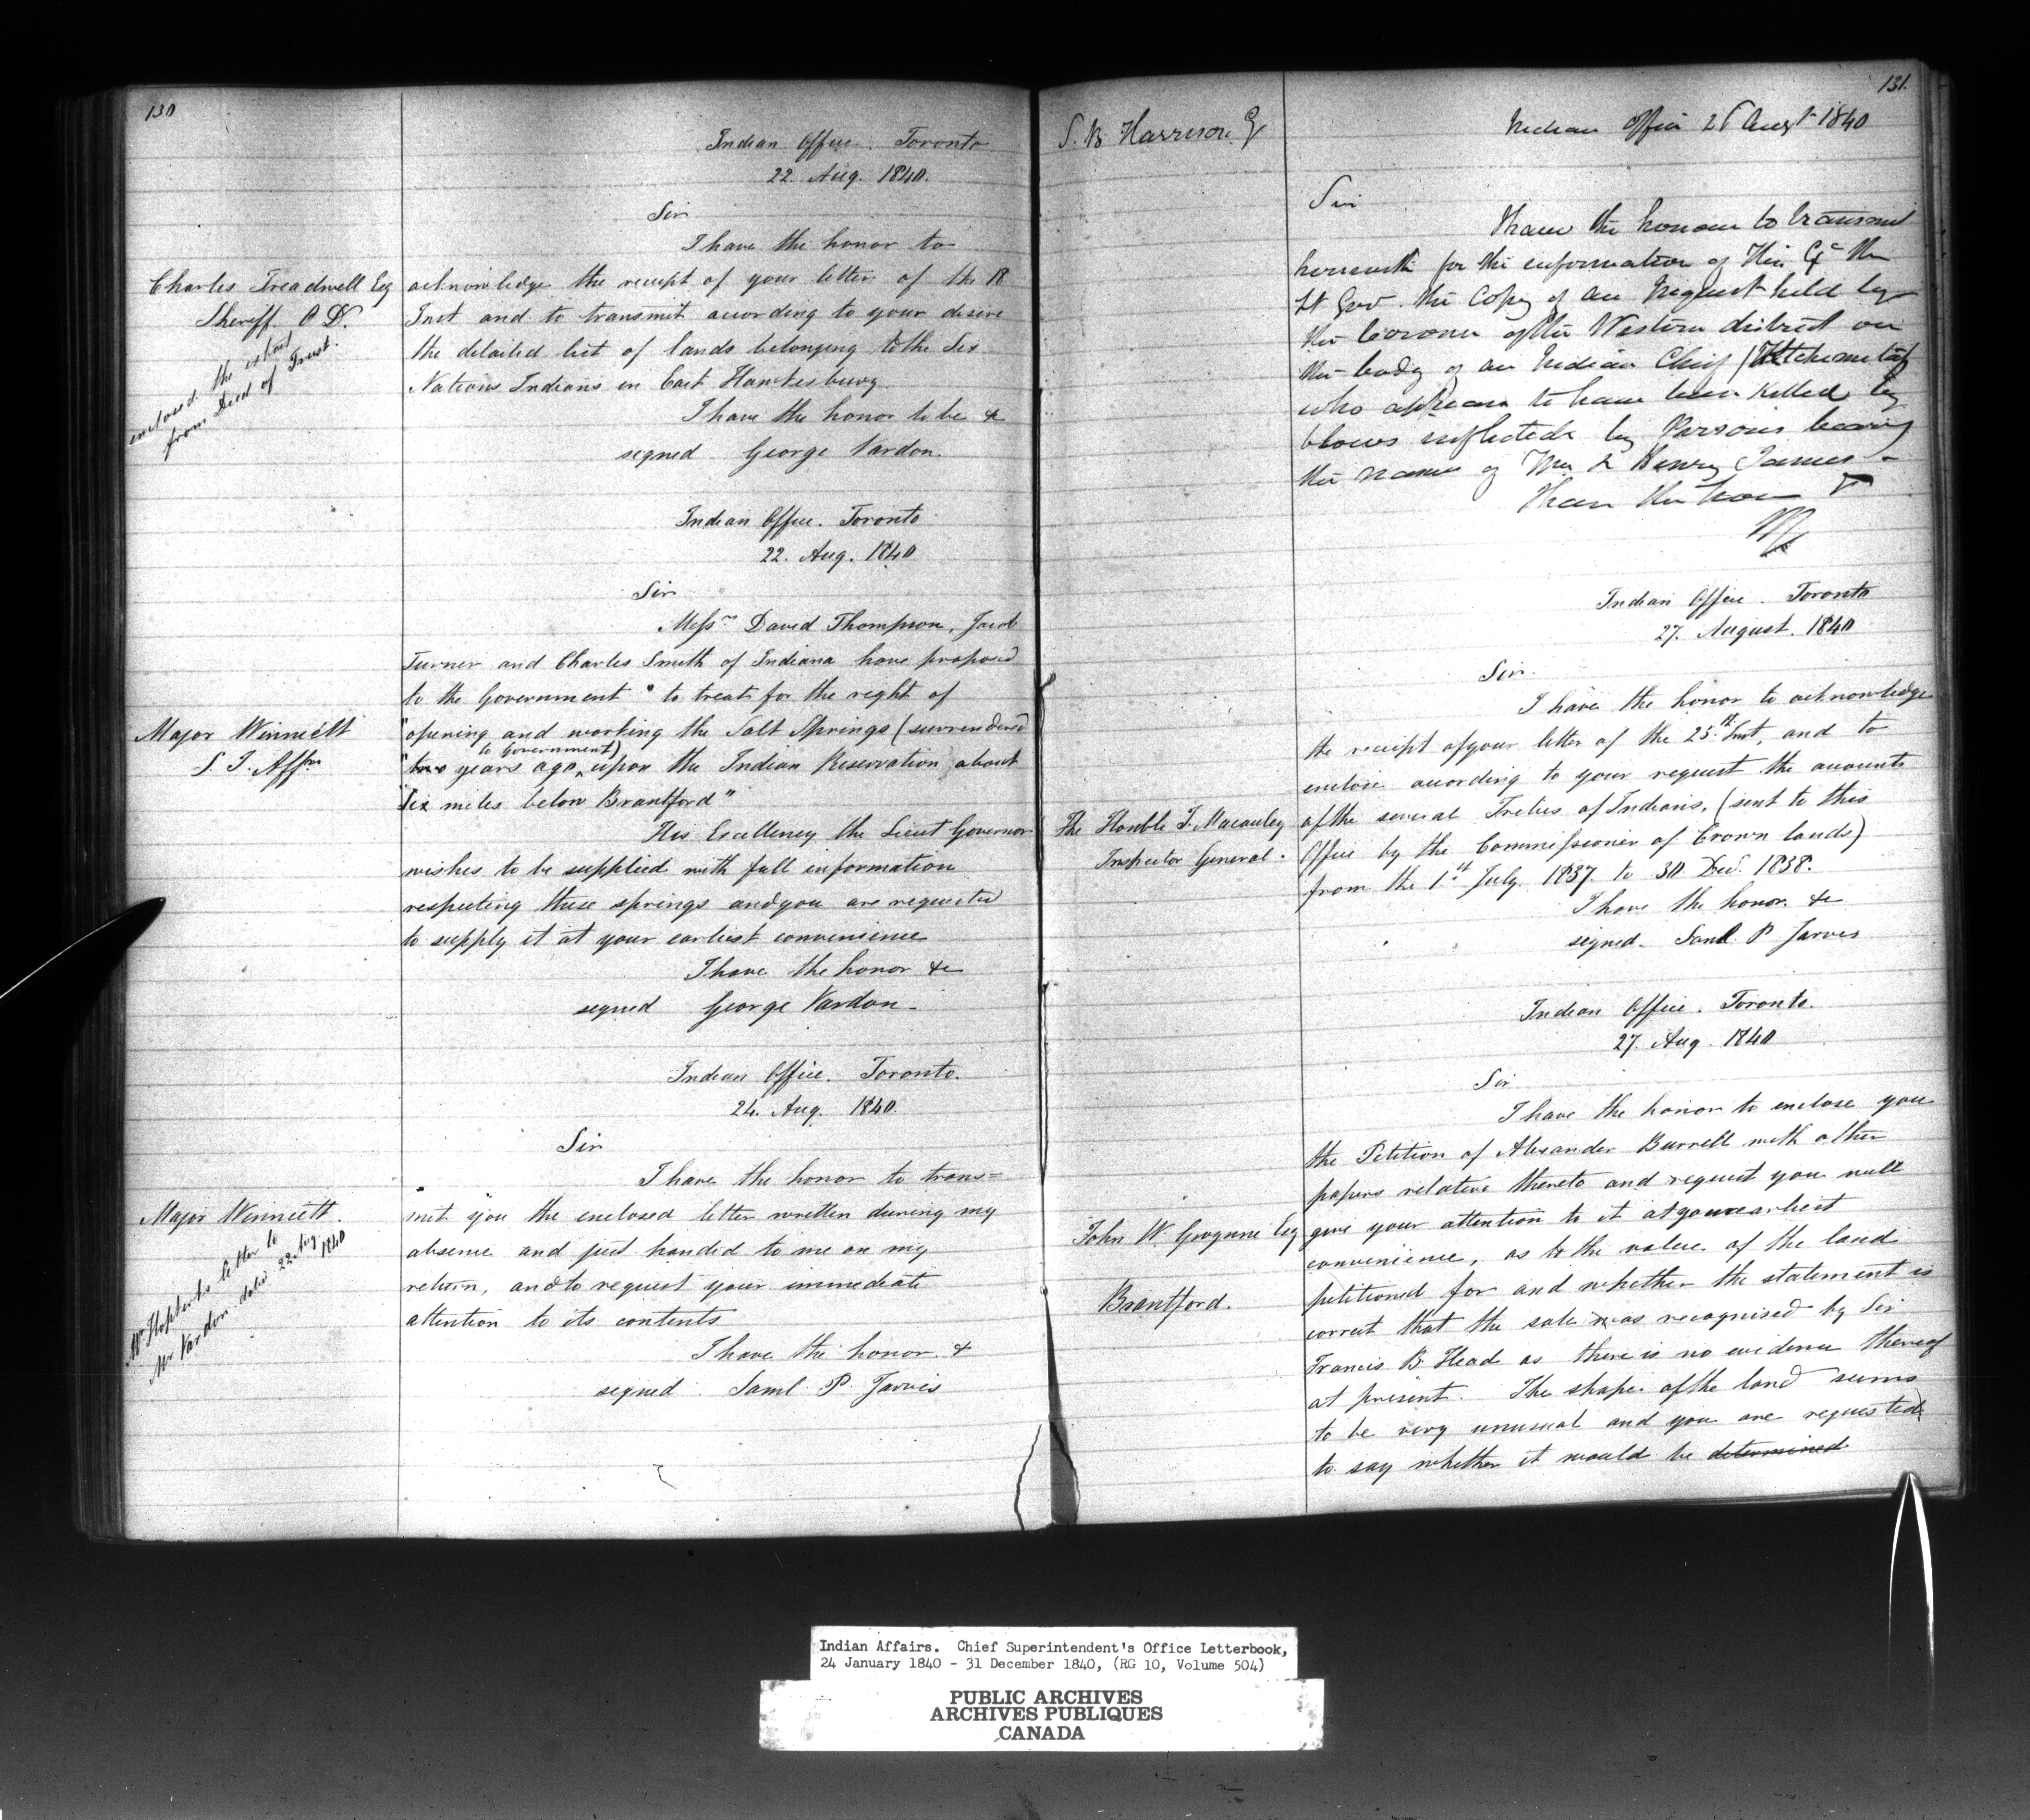 130
Indian Office. Toronto
22. Aug. 1840.
Sir
I have the honor to
Charles Treadwell Esq
Sheriff O D.
enclosed the extract
from Deed of Trust.
acknowledge the receipt of your letter of the 18
Inst and to transmit according to your desire
the detailed list of lands belonging to the Six
Nations Indians in East Hawkesbury
I have the honor to be &
signed George Vardon.
Indian Office. Toronto
22. Aug. 1840
Sir
Messrs David Thompson, Jacob
Turner and Charles Smith of Indiana have proposed
to the Government "to treat for the right of
Major Winniett
S. I. Affrs
"opening and working the Salt Springs (surrendered
to Government)
"two years ago, upon the Indian Reservation about
"Six miles below Brantford"
His Excellency the Lieut Governor
wishes to be supplied with full information
respecting these springs and you are requested
to supply it at your earliest convenience
I have the honor &c
signed George Vardon.
Indian Office. Toronto.
24. Aug. 1840.
Sir
I have the honor to trans=
Major Winniett.
letter to
Mr Vardon dated 22 Aug. 1840
mit you the enclosed letter written during my
absence and just handed to me on my
return, and to request your immediate
attention to its contents
I have the honor. &
signed. Saml. P. Jarvis
131.
S. B. Harrison Eq
Indian Office 26 Augt 1840
Sir
I have the honour to transmit
herewith for the information of His Exc the
Lt Gov. the Copy of an Inquest held by
the Coroner of the Western district on
the body of an Indian Chief
who appears to have been killed by
blows inflicted by Persons bearing
the names of Wm & Henry James -
I have the hon
Indian Office. Toronto
27. August. 1840
Sir.
I have the honor to acknowledge
the receipt of your letter of the 25th Inst, and to
enclose according to your request the accounts
The Honble J. Macauley
Inspector General.
of the several Tribes of Indians, (sent to this
Office by the Commissioner of Crown lands)
from the 1st July 1837. to 30 Decr. 1838.
I have the honor. &c
signed. Saml. P Jarvis
Indian Office. Toronto.
27. Aug. 1840
Sir
I have the honor to enclose you
the Petition of Alexander Burrell with other
papers relative thereto and request you will
John W. Gwynne Esq
Brantford.
give your attention to it at your earliest
convenience, as to the value of the land
petitioned for and whether the statement is
correct that the sale was recognised by Sir
Francis B. Head as there is no evidence thereof
at present. The shape of the land seems
to be very unusual and you are requested
to say whether it would be determined
Indian Affairs. Chief Superintendent's Office Letterbook,
24 January 1840 - 31 December 1840, (RG 10, Volume 504)
PUBLIC ARCHIVES
ARCHIVES PUBLIQUES
CANADA